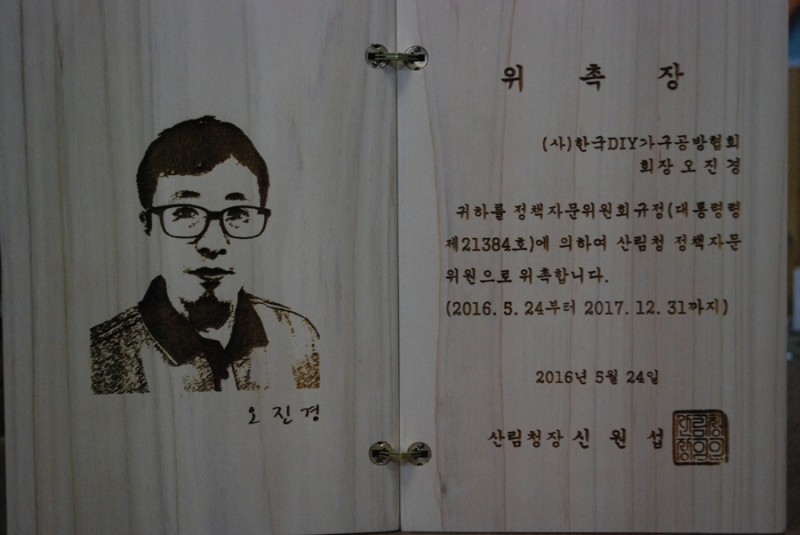 오 진 경
위 촉 장
(사)한국DIY가구공방협회
회장 오 진 경
귀하를 정책자문위원회규정(대통령령
제21384호)에 의하여 산림청 정책자문
위원으로 위촉합니다.
(2016. 5. 24부터 2017. 12. 31까지)
2016년 5월 24일
산림청장 신 원 섭
산림청
장의인